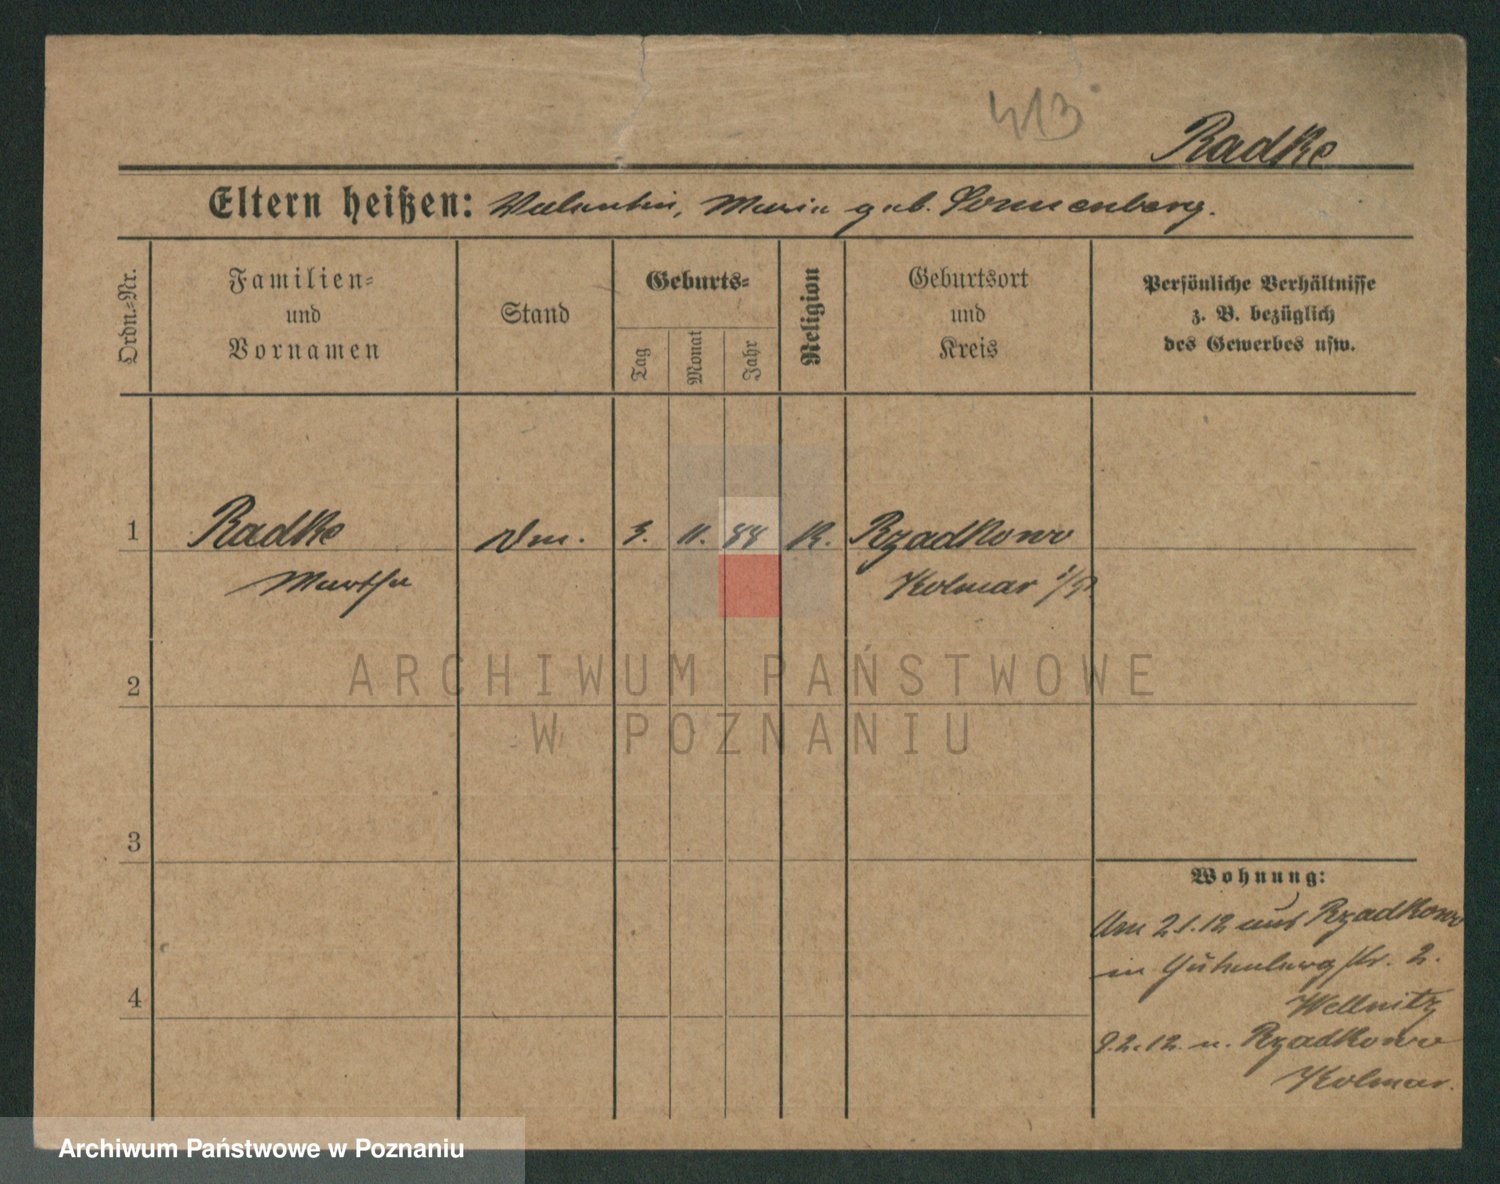 413
Radke
Eltern heißen: Valentin, Maria geb. Sonnenberg.
Ordn.-Nr.
Familien-
und
Vornamen
Stand
Geburts-
Tag
Monat
Jahr
Religion
Geburtsort
und
Kreis
Persönliche Verhältnisse
z. B. bezüglich
des Gewerbes usw.
1 Radke 3. 11. 88 K. Rzadkowo
Martha Kolmar i/P.
ARCHIWUM PAŃSTWOWE
W POZNANIU
2
3
4
Wohnung:
Am 2.1.12 aus Rzadkowo
in Gutenbergstr. 2.
Wellnitz
9.2.12. n. Rzadkowo
Kolmar.
Archiwum Państwowe w Poznaniu